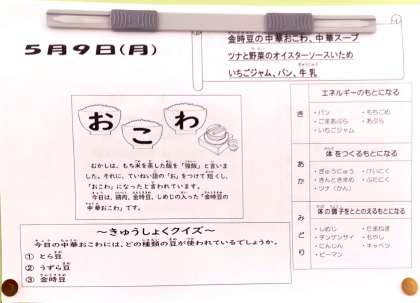 5月9日(月)
金時豆の中華おこわ、中華スープ
ツナと野菜のオイスターソースいため
いちごジャム、パン、牛乳
おこわ
むかしは、もち米を蒸した飯を「強飯」と言いま
した。それに、ていねい語の「お」をつけて短くし、
「おこわ」になったと言われています。
今日は、豚肉、金時豆、しめじの入った「金時豆の
中華おこわ」です。
~きゅうしょくクイズ~
今日の中華おこわには、どの種類の豆が使われているでしょうか。
① とら豆
② うずら豆
③ 金時豆
エネルギーのもとになる
き
・パン ・もちごめ
・ごまあぶら ・あぶら
・いちごジャム
体をつくるもとになる
あか
・ぎゅうにゅう ・けいにく
・きんときまめ ・ぶたにく
・ツナ(かん)
体の調子をととのえるもとになる
みどり
・しめじ ・たまねぎ
・チンゲンサイ ・もやし
・にんじん ・キャベツ
・ピーマン